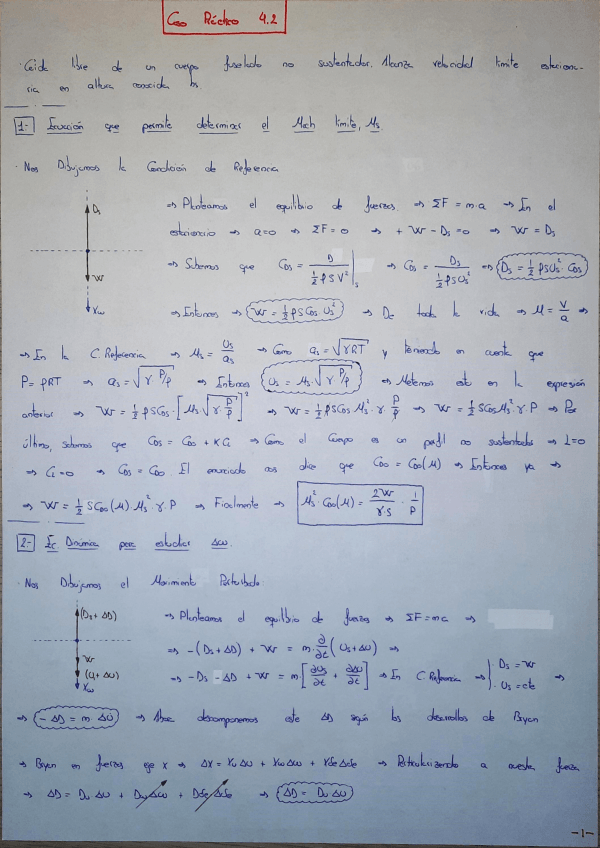 Caso Práctico 4.2
· Caída libre de un cuerpo fuselado no sustentador. Alcanza velocidad límite estaciona-
ria en altura conocida hs.
1- Ecuación que permite determinar el Mach límite, Ms
· Nos Dibujamos la Condición de Referencia
Ds
W
Xw
⇒ Planteamos el equilibrio de fuerzas. ⇒ ΣF = m·a ⇒ En el
estacionario ⇒ a=0 ⇒ ΣF=0 ⇒ +W - Ds = 0 ⇒ W = Ds
⇒ Sabemos que CDs = D / (½ρSV²)|s ⇒ CDs = Ds / (½ρSUs²) ⇒ Ds = ½ρSUs²·CDs
⇒ Entonces ⇒ W = ½ρSCDs Us² ⇒ De toda la vida ⇒ M = V/a ⇒
⇒ En la C. Referencia ⇒ Ms = Us/as ⇒ Como as = √(γRT) y teniendo en cuenta que
P = ρRT ⇒ as = √(γ P/ρ) ⇒ Entonces Us = Ms·√(γ P/ρ) ⇒ Metemos esto en la expresión
anterior ⇒ W = ½ρSCDs·[Ms√(γ P/ρ)]² ⇒ W = ½ρSCDs Ms²·γ·P/ρ ⇒ W = ½SCDs Ms²·γ·P ⇒ Por
último, sabemos que CDs = CD0 + KCL ⇒ Como el Cuerpo es un perfil no sustentador ⇒ L=0
⇒ CL=0 ⇒ CDs = CD0. El enunciado nos dice que CD0 = CD0(M) ⇒ Entonces ya ⇒
⇒ W = ½SCD0(M) Ms²·γ·P ⇒ Finalmente ⇒ Ms²·CD0(M) = 2W/(γ·S) · 1/P
2- Ec Dinámica para estudiar Δu.
· Nos Dibujamos el Movimiento Perturbado
(Ds + ΔD)
W
(Us + ΔU)
Xw
⇒ Planteamos el equilibrio de fuerzas ⇒ ΣF = m·a ⇒
⇒ -(Ds + ΔD) + W = m·∂/∂t (Us + Δu) ⇒
⇒ -Ds - ΔD + W = m[∂Us/∂t + ∂Δu/∂t] ⇒ En C. Referencia ⇒ | · Ds = W · Us = cte ⇒
⇒ -ΔD = m Δu̇ ⇒ Ahora descomponemos este ΔD según los desarrollos de Bryan
⇒ Bryan en fuerzas eje x ⇒ Δx = Xu Δu + Xw Δw + Xδe Δδe ⇒ Particularizando a nuestra fuerza
⇒ ΔD = Du Δu + Dw Δw + Dδe Δδe ⇒ ΔD = Du Δu
-1-